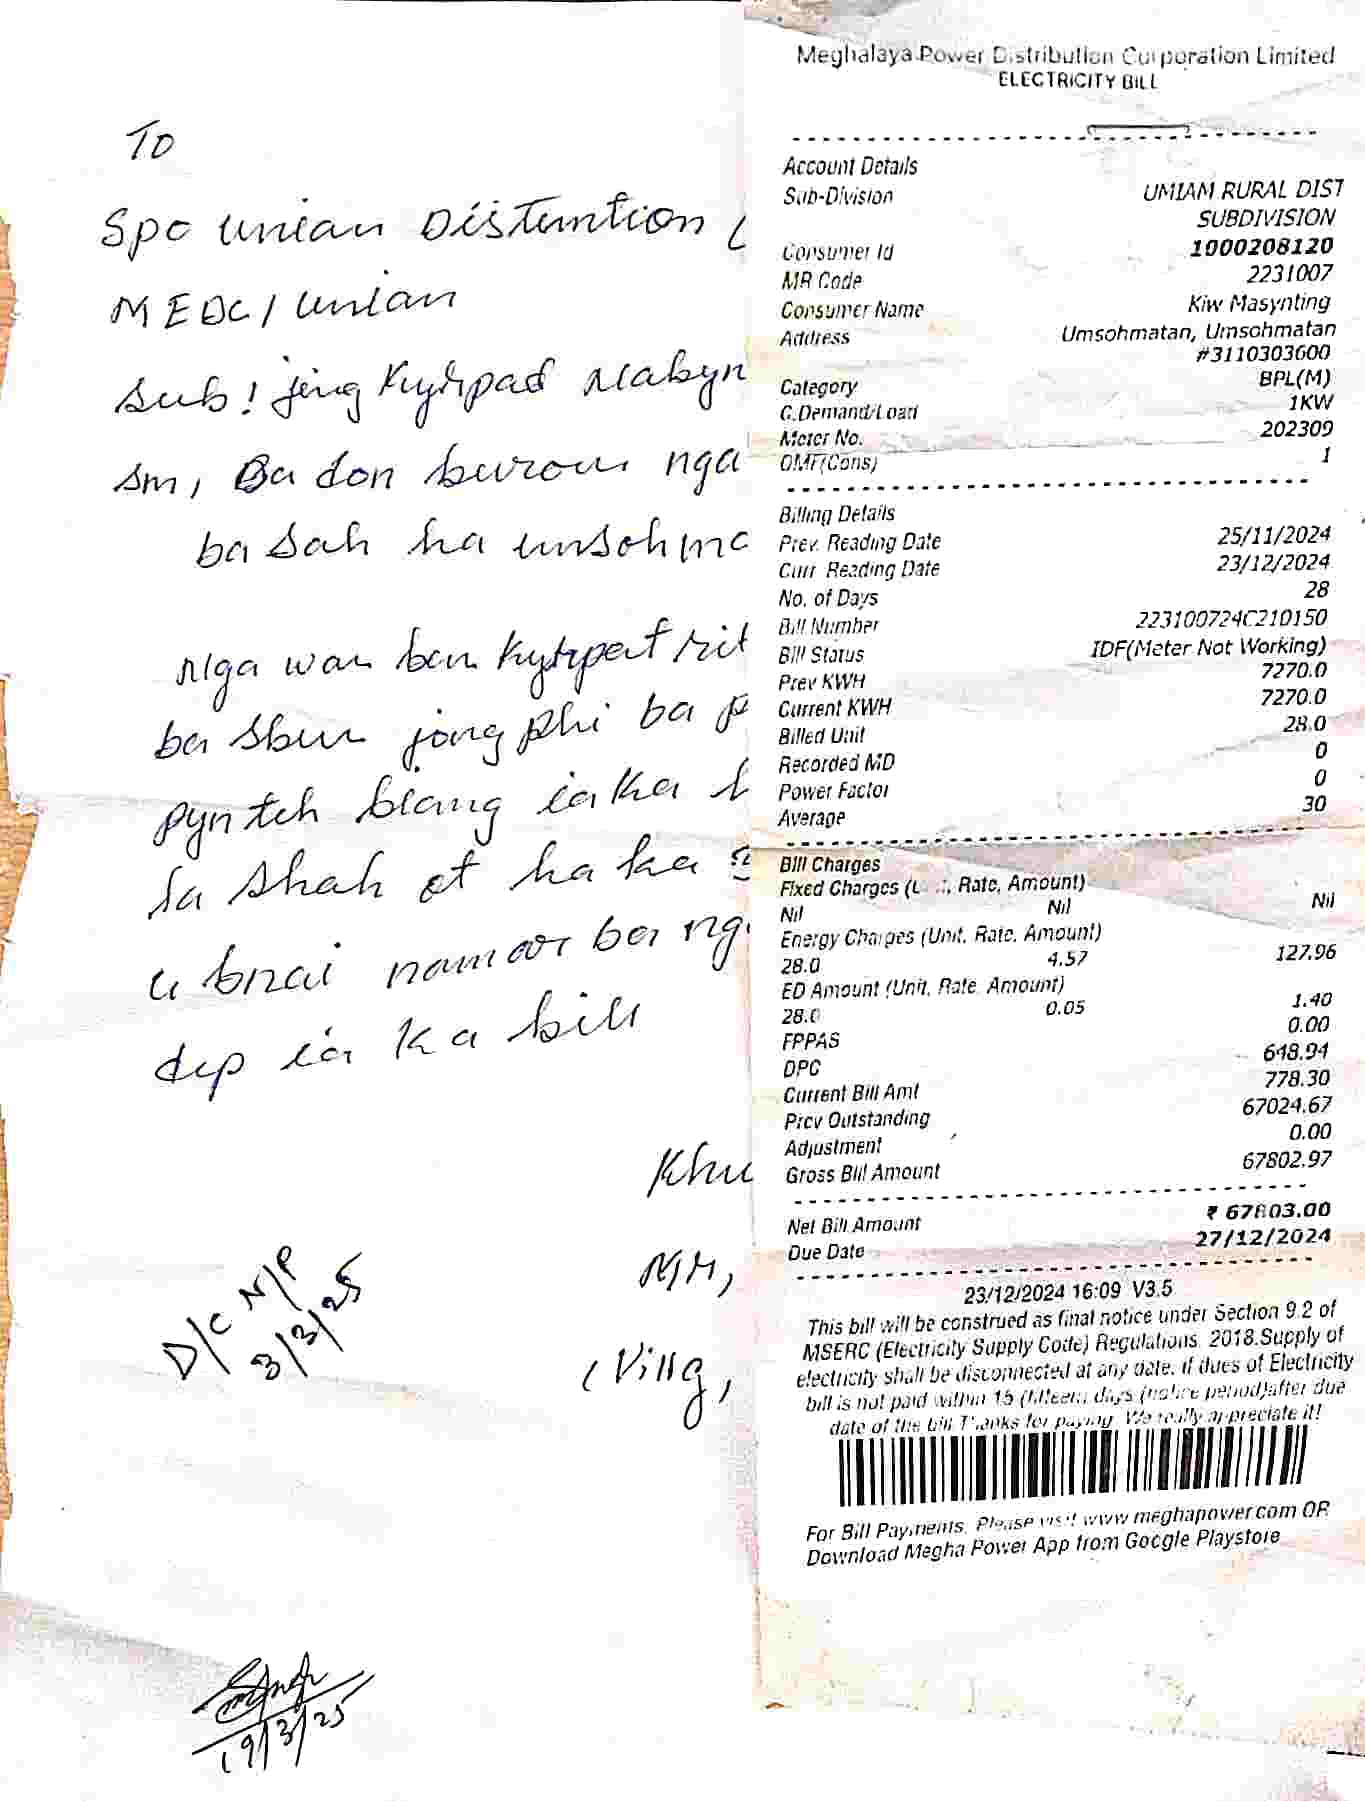 To
Spo unian Distention (
MEDC / Unian
Sub! jing Kyrpad nabyn
sm, Ba don burom nga
ba sah ha umsohma
Nga wan ban kyrpat
ba sbun jong phi ba p
pyn teh biang ia ka b
la shah ot ha ka
u bnai namar ba nga
dep ia ka bill
Khu
(Villg,
D/C N/P
3/3/25
19/3/25
Meghalaya Power Distribution Corporation Limited
ELECTRICITY BILL
Account Details
Sub-Division UMIAM RURAL DIST
SUBDIVISION
Consumer Id 1000208120
MR Code 2231007
Consumer Name Kiw Masynting
Address Umsohmatan, Umsohmatan
#3110303600
Category BPL(M)
C.Demand/Load 1KW
Meter No. 202309
OMF(Cons) 1
Billing Details
Prev. Reading Date 25/11/2024
Curr. Reading Date 23/12/2024
No. of Days 28
Bill Number 223100724C210150
Bill Status IDF(Meter Not Working)
Prev KWH 7270.0
Current KWH 7270.0
Billed Unit 28.0
Recorded MD 0
Power Factor 0
Average 30
Bill Charges
Fixed Charges ( Rate, Amount)
Nil Nil Nil
Energy Charges (Unit, Rate, Amount)
28.0 4.57 127.96
ED Amount (Unit, Rate, Amount)
28.0 0.05 1.40
FPPAS 0.00
DPC 648.94
Current Bill Amt 778.30
Prev Outstanding 67024.67
Adjustment 0.00
Gross Bill Amount 67802.97
Net Bill Amount ₹ 67803.00
Due Date 27/12/2024
23/12/2024 16:09 V3.5
This bill will be construed as final notice under Section 9.2 of
MSERC (Electricity Supply Code) Regulations, 2018.Supply of
electricity shall be disconnected at any date, if dues of Electricity
bill is not paid within 15 (fifteen) days (notice period)after due
date of the bill.Thanks for paying. We really appreciate it!
For Bill Payments, Please visit www.meghapower.com OR
Download Megha Power App from Google Playstore